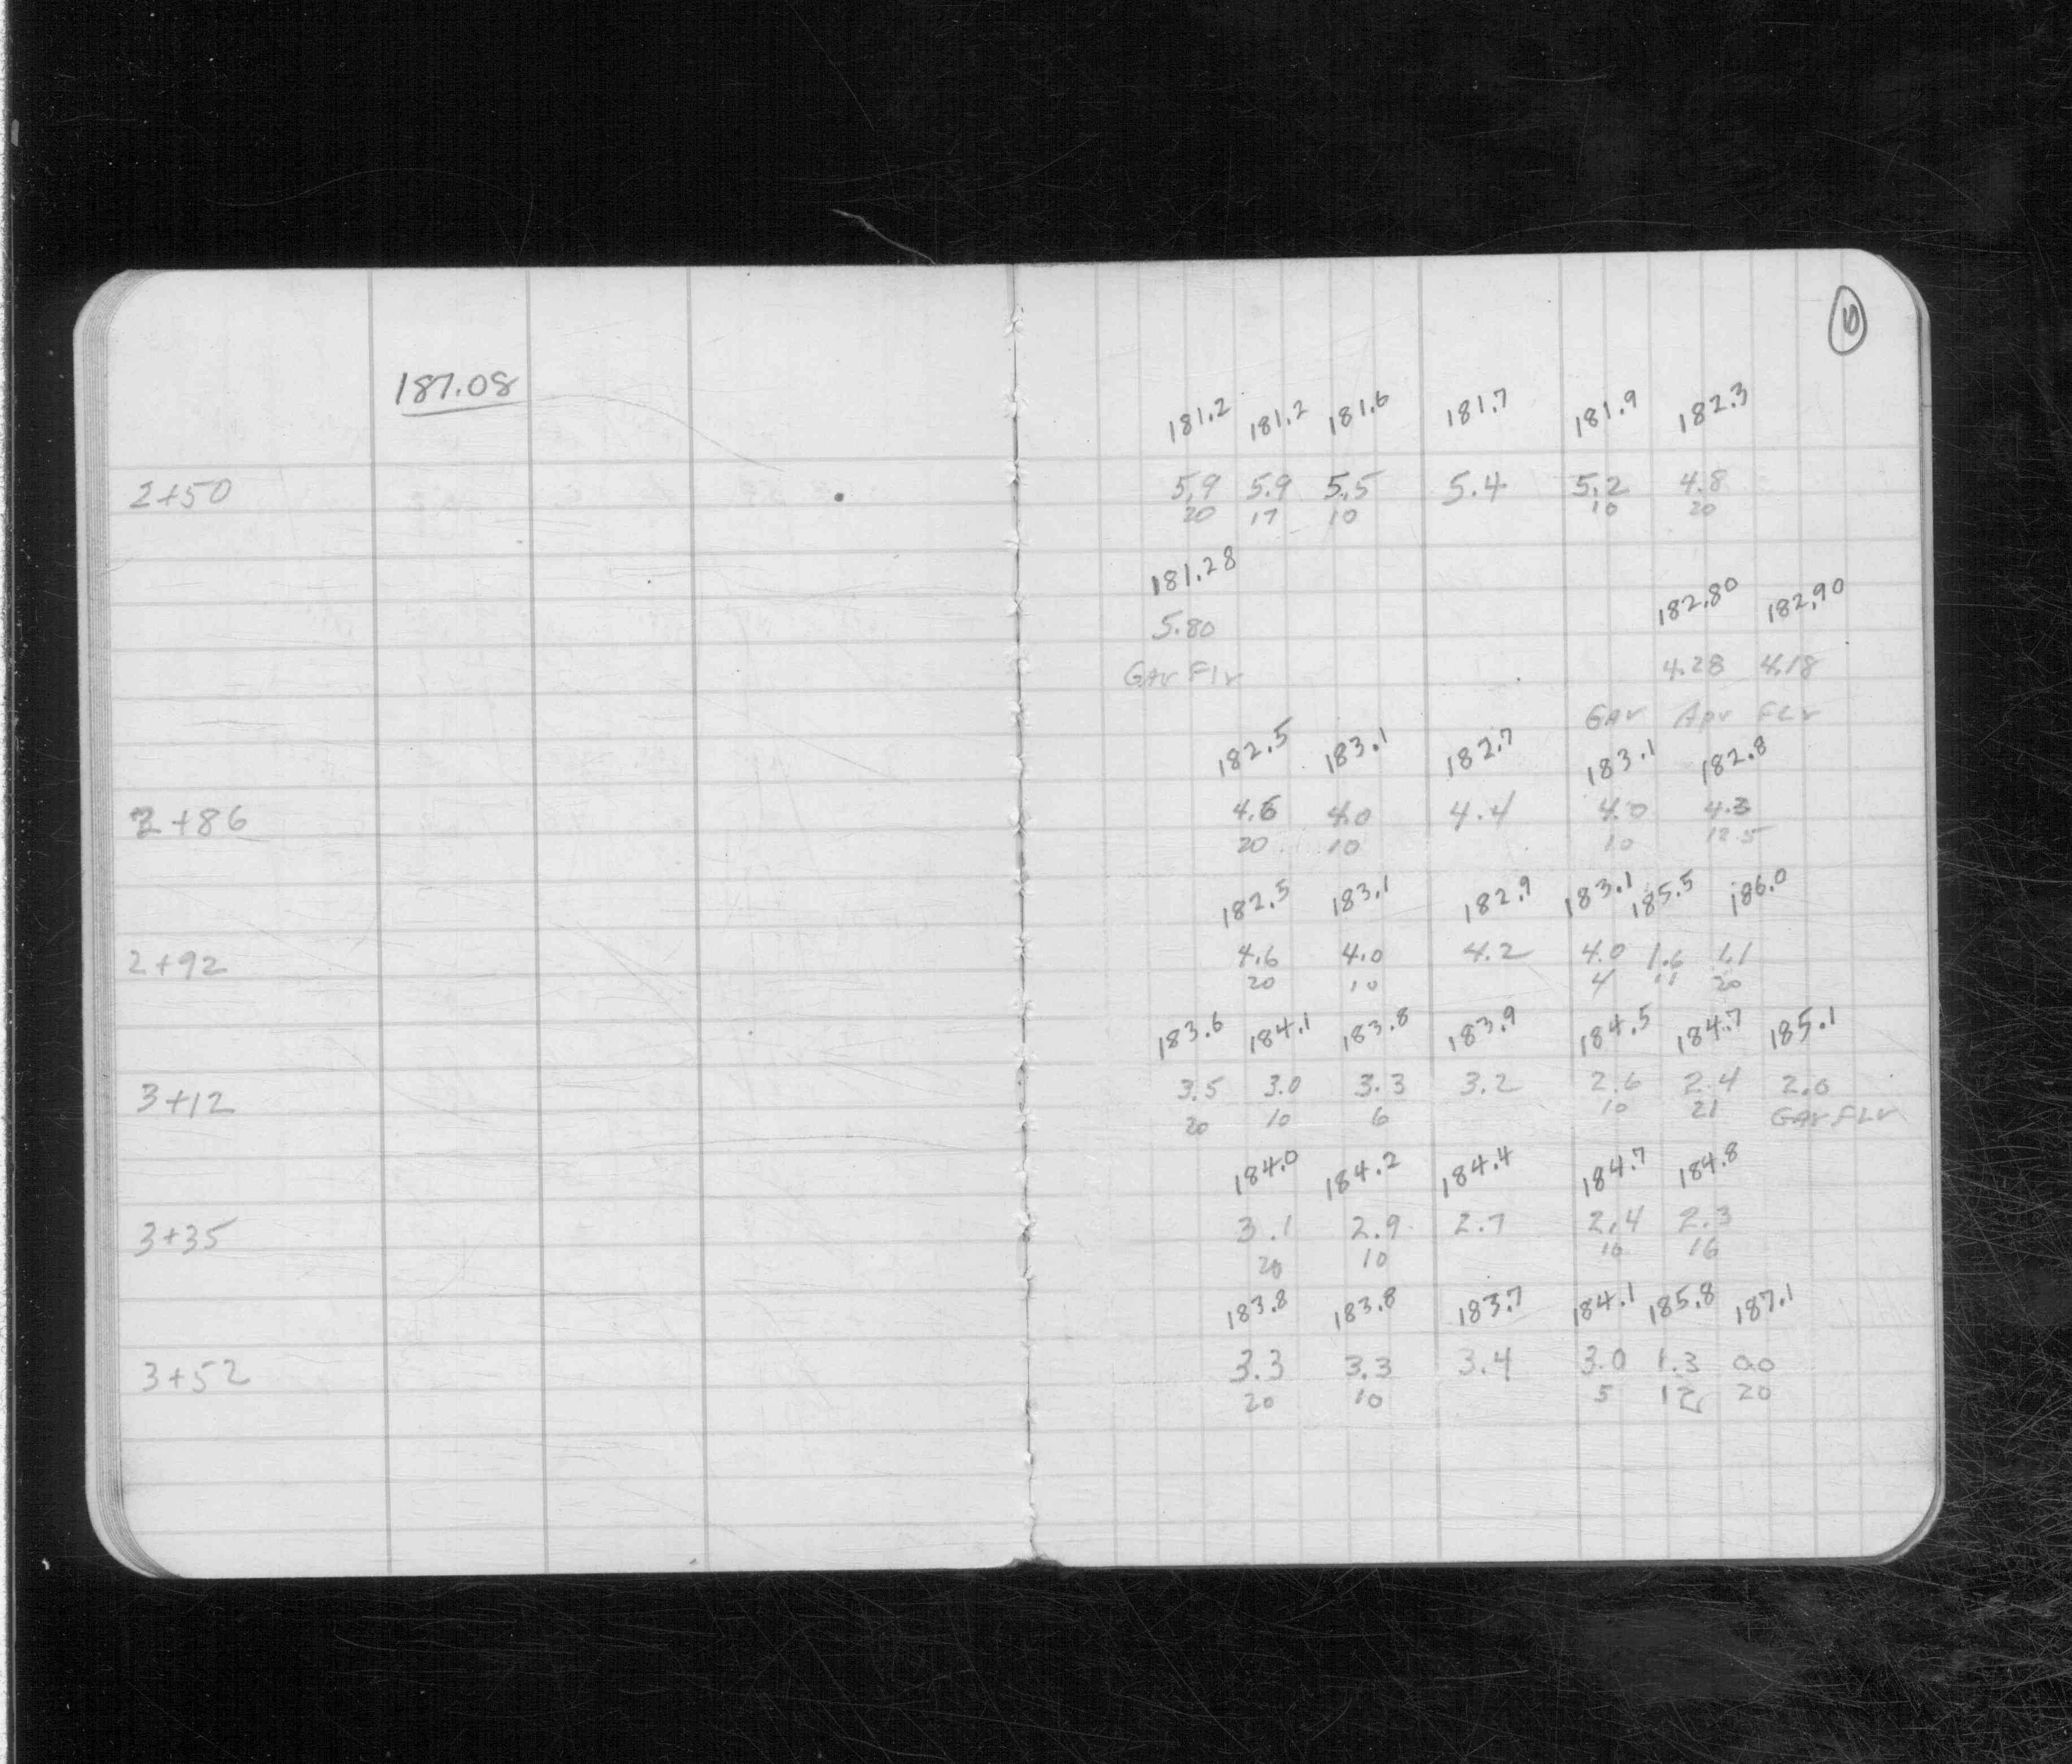 187.08
181.2 181.2 181.6 181.7 181.9 182.3
2+50 5.9 5.9 5.5 5.4 5.2 4.8
20 17 10 10 20
181.28
182.80 182.90
5.80
GAr Flr 4.28 4.18
GAr Apr FLr
182.5 183.1 182.7 183.1 182.8
2+86 4.6 4.0 4.4 4.0 4.3
20 10 10 12.5
182.5 183.1 182.9 183.1 185.5 186.0
2+92 4.6 4.0 4.2 4.0 1.6 1.1
20 10 4 11 20
183.6 184.1 183.8 183.9 184.5 184.7 185.1
3+12 3.5 3.0 3.3 3.2 2.6 2.4 2.0
20 10 6 10 21 GAr FLr
184.0 184.2 184.4 184.7 184.8
3+35 3.1 2.9 2.7 2.4 2.3
20 10 10 16
183.8 183.8 183.7 184.1 185.8 187.1
3+52 3.3 3.3 3.4 3.0 1.3 0.0
20 10 5 12 20